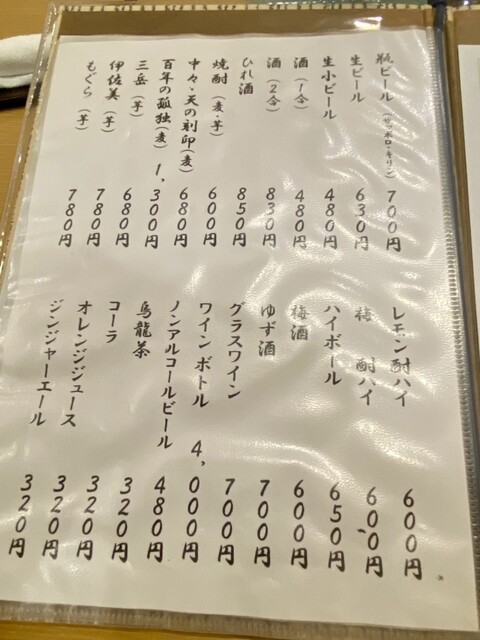 瓶ビール（サッポロ・キリン） 700円
生ビール 630円
生小ビール 480円
酒（1合） 480円
酒（2合） 830円
ひれ酒 850円
焼酎（麦・芋） 600円
中々・天の刻印（麦） 680円
百年の孤独（麦） 1,300円
三岳（芋） 680円
伊佐美（芋） 780円
もぐら（芋） 780円
レモン酎ハイ 600円
梅 酎ハイ 600円
ハイボール 650円
梅酒 600円
ゆず酒 700円
グラスワイン 700円
ワイン ボトル 4,000円
ノンアルコールビール 480円
烏龍茶 320円
コーラ 320円
オレンジジュース 320円
ジンジャーエール 320円